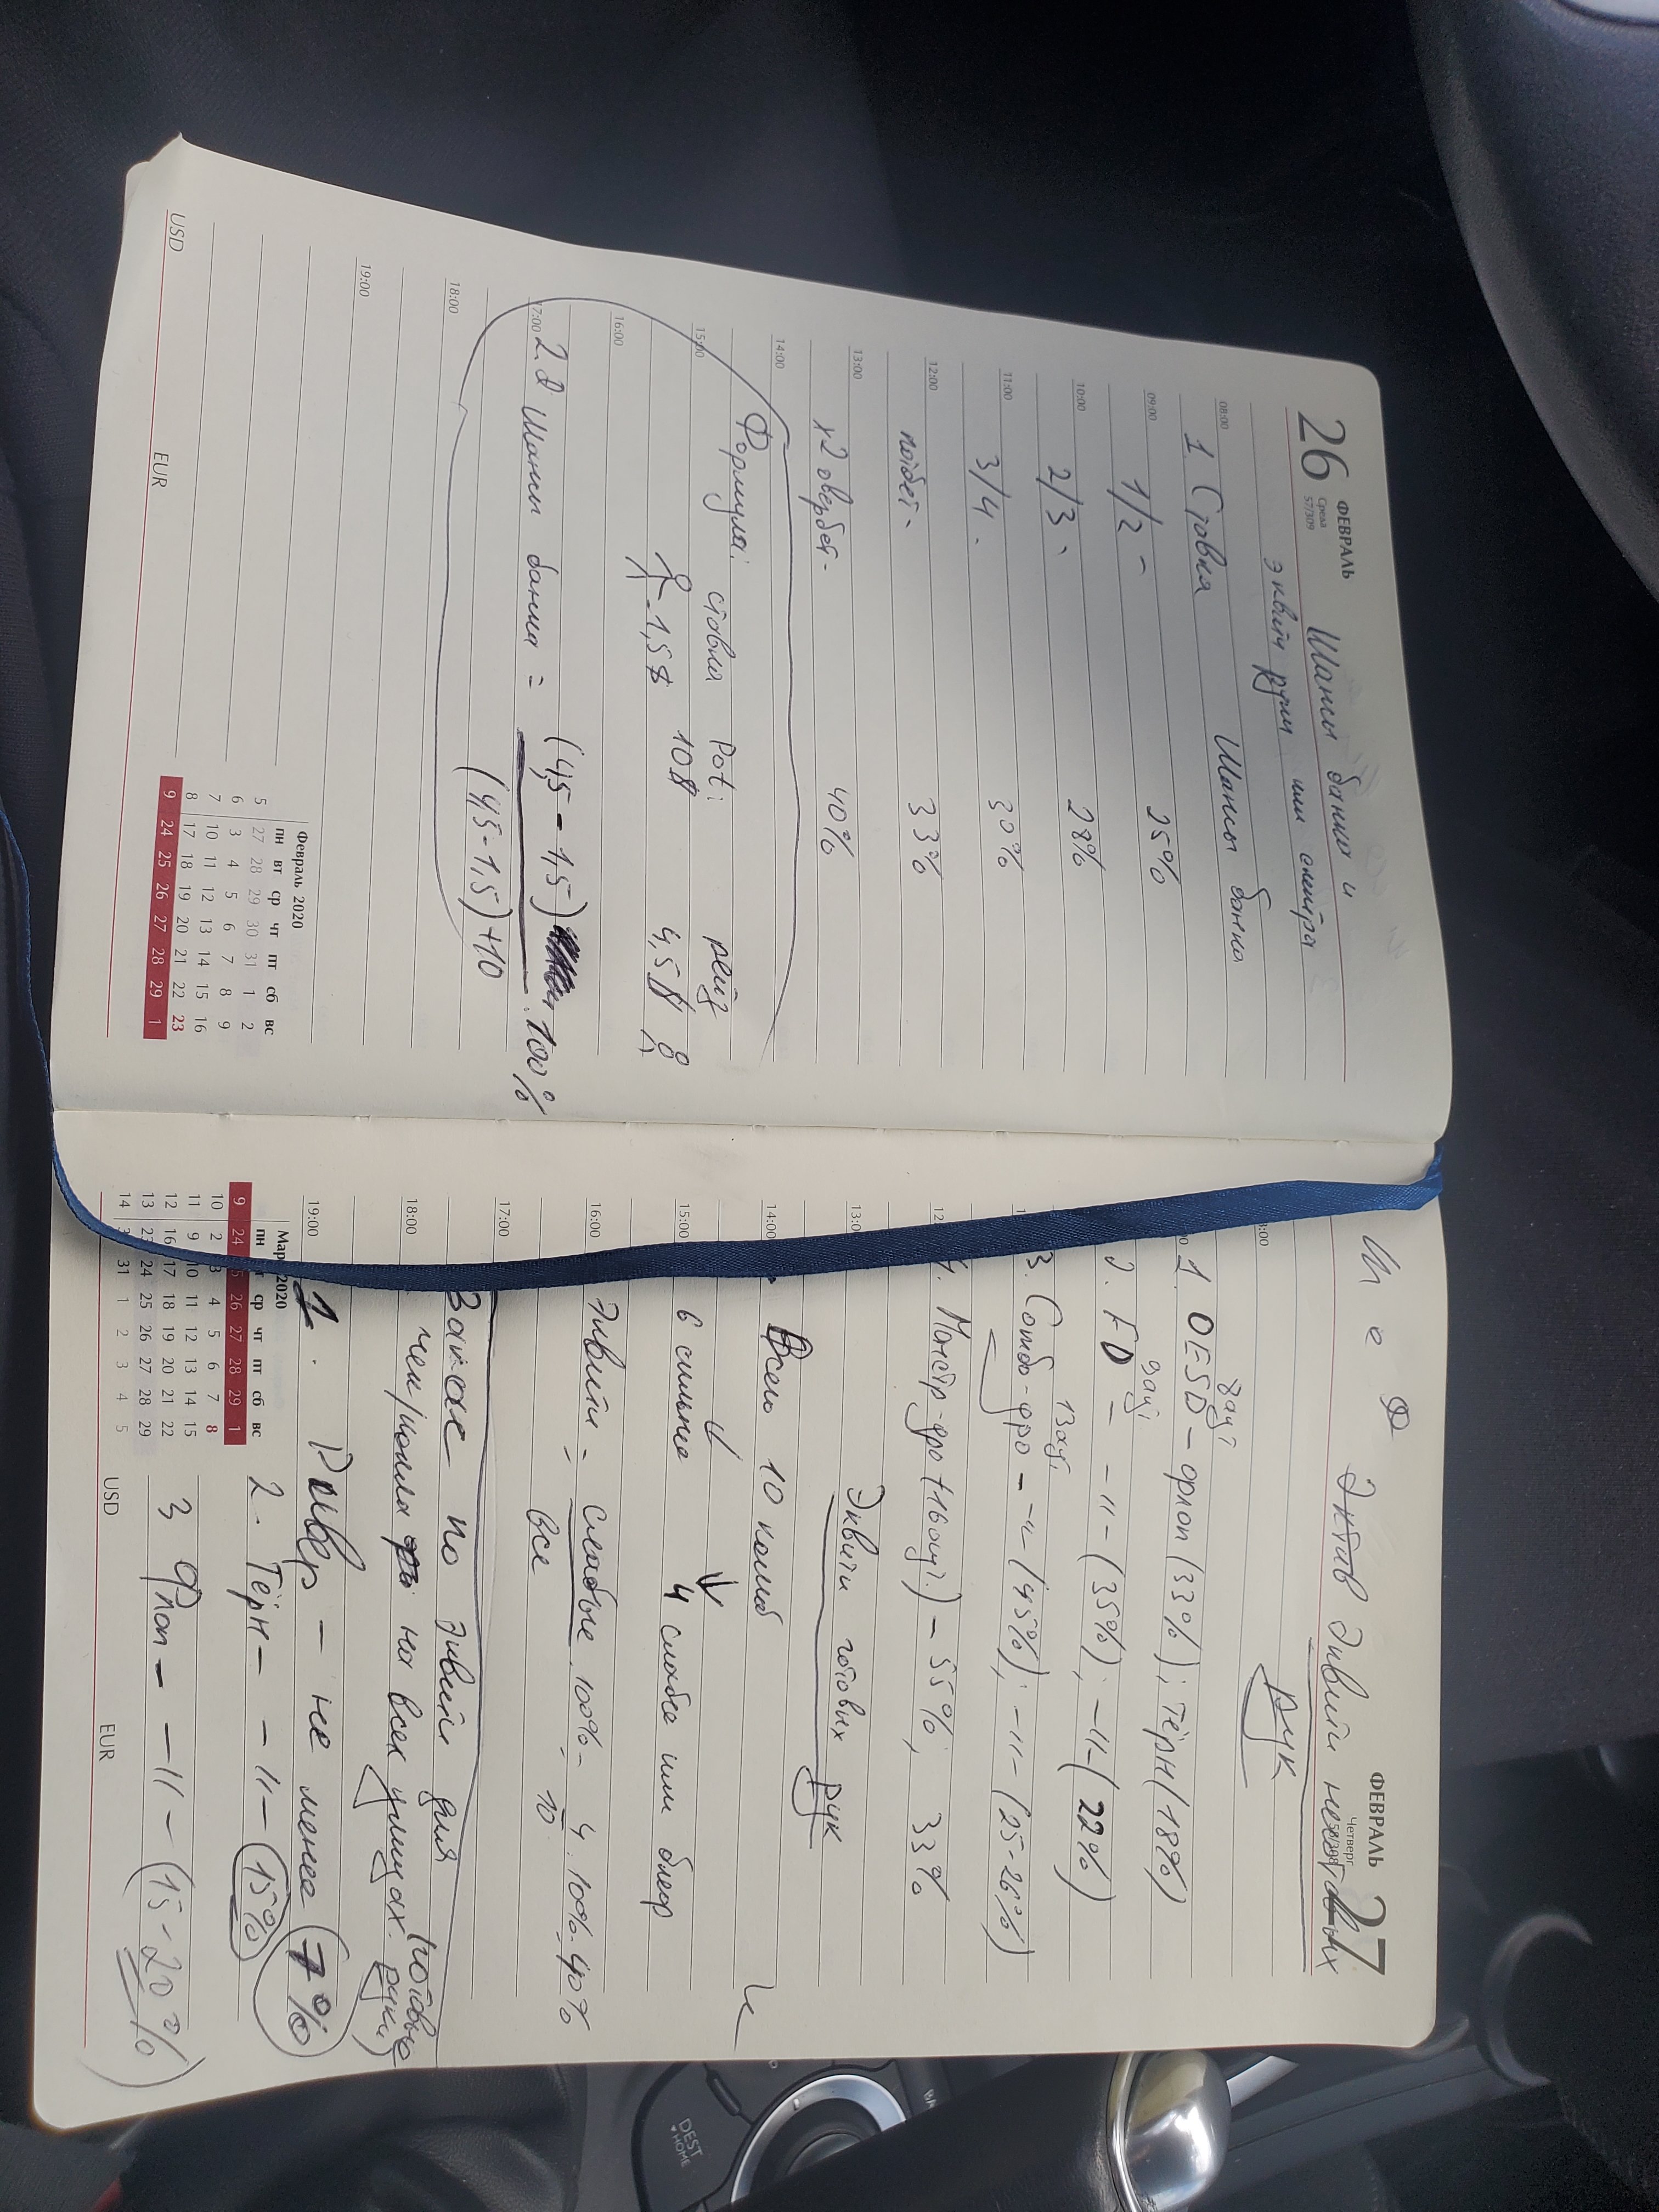 26
ФЕВРАЛЬ
Среда
57/309
Шансы банка и
эквити руки или спектра
08:00
1 Ставка Шансы банка
09:00
1/2 - 25%
10:00
2/3 - 28%
11:00
3/4 - 30%
12:00
потбет - 33%
13:00
х2 овербет - 40%
14:00
Формула: ставка Pot: рейз
15:00
- 1,5$ 10$ 4,5$
16:00
17:00
2.2 Шансы банка = (4,5 - 1,5) · 100%
(4,5 - 1,5) + 10
18:00
19:00
USD EUR
Февраль 2020
пн вт ср чт пт сб вс
5 27 28 29 30 31 1 2
6 3 4 5 6 7 8 9
7 10 11 12 13 14 15 16
8 17 18 19 20 21 22 23
9 24 25 26 27 28 29 1
ФЕВРАЛЬ 27
Четверг
Эквити неготовых
рук
8 аут
1. OESD - флоп (33%); Тёрн (18%)
9 аут
2. FD - -"- (35%); -"- (22%)
13 аут
3. Комбо-дро - -"- (45%); -"- (25-26%)
12:00
4. Монстр-дро (+16 аут.) - 55%; 33%
13:00
Эквити готовых рук
14:00
Всего 10 комб
15:00
6 сильнее 4 слабее или блеф
16:00
Эквити = слабые · 100% = 4 · 100% = 40%
все 10
17:00
Запас по эквити для
18:00
чек/колла на всех улицах (готовые
руки)
19:00
1. Ривер - не менее 7%
2. Тёрн - -"- 15%
3 Флоп - -"- (15-20%)
2020
пн ср чт пт сб вс
9 24 26 27 28 29 1
10 2 3 4 5 6 7 8
11 9 10 11 12 13 14 15
12 16 17 18 19 20 21 22
13 23 24 25 26 27 28 29
14 31 1 2 3 4 5
USD EUR
DEST
HOME